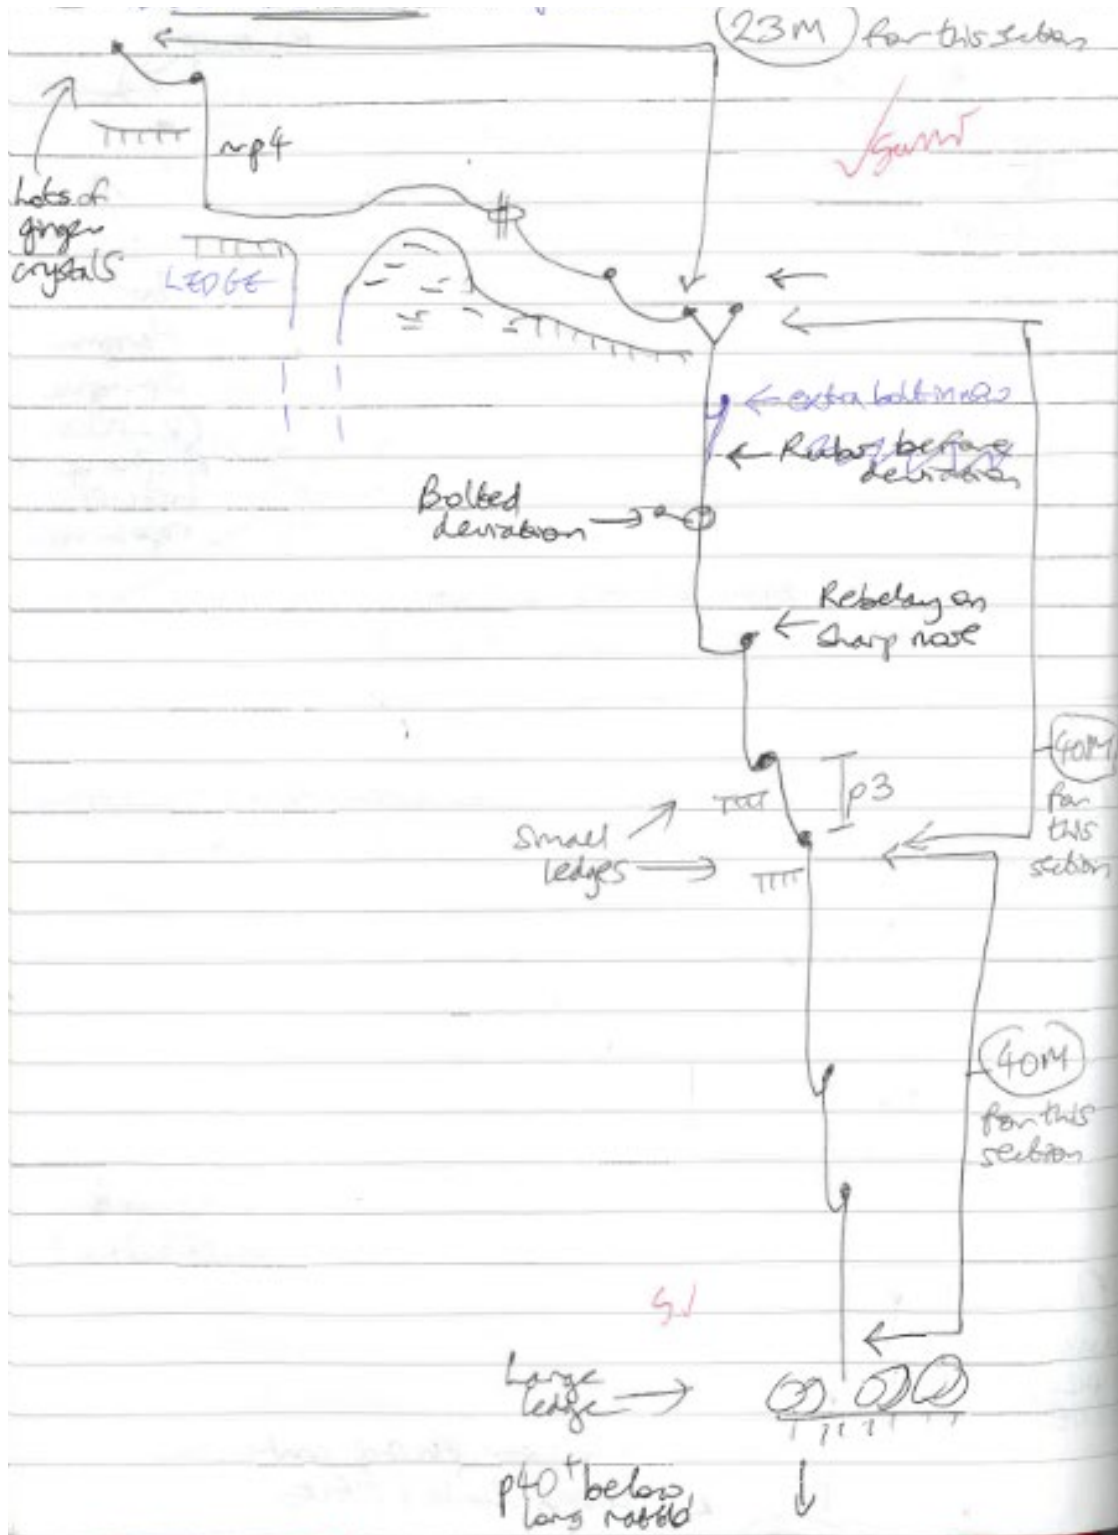 23M for this section
mp4
Lots of
ginger
crystals
LEDGE
← extra bolt in now
before
deviation
Bolted
deviation
Rebelay on
sharp nose
p3
40M
for
this
section
small
ledges
40M
for this
section
Large
ledge
p40+ below
long rattle